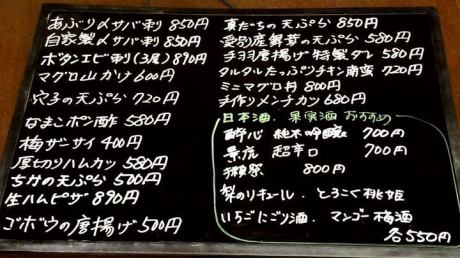 あぶり〆サバ刺 850円
自家製〆サバ刺 850円
ボタンエビ刺(3尾) 890円
マグロ山かけ 600円
穴子の天ぷら 720円
なまこポン酢 580円
梅ザンサイ 400円
厚切りハムカツ 580円
ちかの天ぷら 500円
生ハムピザ 890円
ゴボウの唐揚げ 500円
真だちの天ぷら 850円
愛別産舞茸の天ぷら 580円
手羽唐揚げ特製ダレ 580円
タルタルたっぷりチキン南蛮 720円
ミニマグロ丼 800円
手作りメンチカツ 680円
日本酒、果実酒おすすめ
酔心 純米吟醸 700円
景虎 超辛口 700円
獺祭 800円
梨のリキュール、とろこく桃姫
いちごにごり酒、マンゴー梅酒
各550円